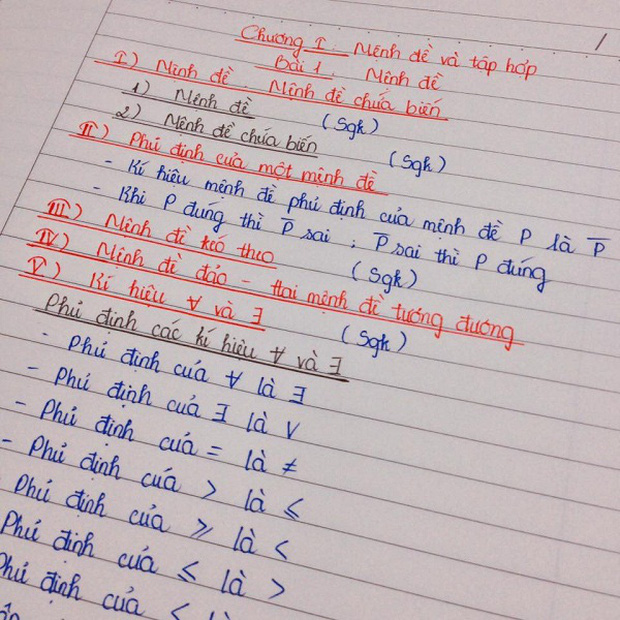 Chương I : Mệnh đề và tập hợp
Bài 1 : Mệnh đề
I) Mệnh đề. Mệnh đề chứa biến
1) Mệnh đề (Sgk)
2) Mệnh đề chứa biến (Sgk)
II) Phủ định của một mệnh đề
- Kí hiệu mệnh đề phủ định của mệnh đề P là P̅
- Khi P đúng thì P̅ sai ; P̅ sai thì P đúng
III) Mệnh đề kéo theo (Sgk)
IV) Mệnh đề đảo - Hai mệnh đề tương đương
V) Kí hiệu ∀ và ∃ (Sgk)
Phủ định các kí hiệu ∀ và ∃
- Phủ định của ∀ là ∃
- Phủ định của ∃ là V
- Phủ định của = là ≠
- Phủ định của > là ≤
Phủ định của ≥ là <
Phủ định của ≤ là >
Phủ định của < là